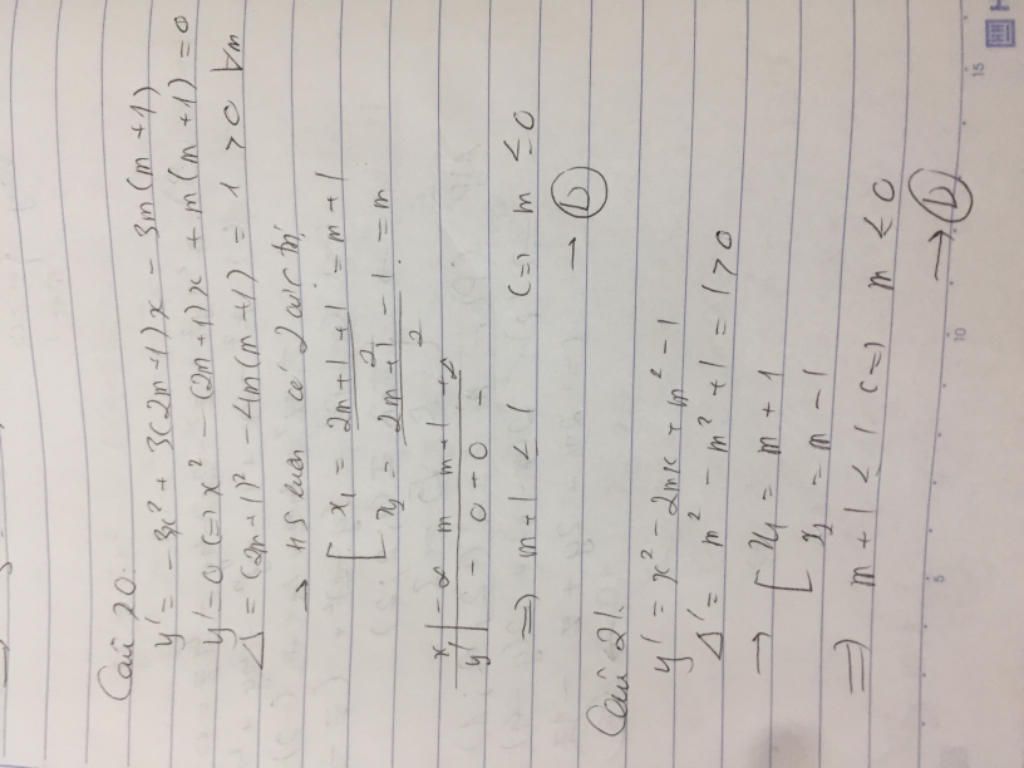 Câu 20:
y' = -3x² + 3(2m+1)x - 3m(m+1)
y' = 0 (=) x² - (2m+1)x + m(m+1) = 0
Δ = (2m+1)² - 4m(m+1) = 1 > 0 ∀m
→ HS luôn có 2 cực trị
[ x₁ = (2m+1+1)/2 = m+1
x₂ = (2m+1-1)/2 = m
x | -∞ m m+1 +∞
y' | - 0 + 0 -
=) m+1 ≤ 1 (=) m ≤ 0
→ (D)
Câu 21:
y' = x² - 2mx + m² - 1
Δ' = m² - m² + 1 = 1 > 0
→ [ x₁ = m + 1
x₂ = m - 1
=) m + 1 ≤ 1 (=) m ≤ 0
→ (D)
5 10 15